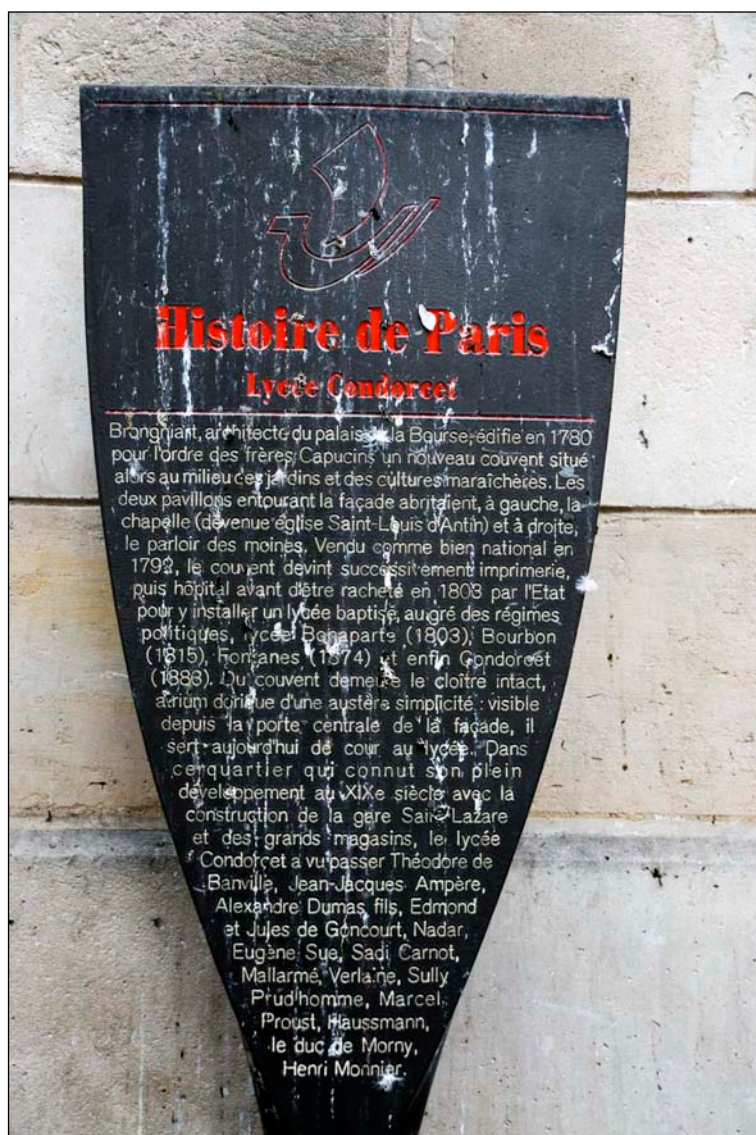 Histoire de Paris
Lycée Condorcet
Brongniart, architecte du palais de la Bourse, édifie en 1780
pour l'ordre des frères Capucins un nouveau couvent situé
alors au milieu des jardins et des cultures maraîchères. Les
deux pavillons entourant la façade abritaient, à gauche, la
chapelle (devenue église Saint-Louis d'Antin) et à droite,
le parloir des moines. Vendu comme bien national en
1792, le couvent devint successivement imprimerie,
puis hôpital avant d'être racheté en 1803 par l'Etat
pour y installer un lycée baptisé, au gré des régimes
politiques, lycée Bonaparte (1803), Bourbon
(1815), Fontanes (1874) et enfin Condorcet
(1883). Du couvent demeure le cloître intact,
atrium dorique d'une austère simplicité : visible
depuis la porte centrale de la façade, il
sert aujourd'hui de cour au lycée. Dans
ce quartier qui connut son plein
développement au XIXe siècle avec la
construction de la gare Saint-Lazare
et des grands magasins, le lycée
Condorcet a vu passer Théodore de
Banville, Jean-Jacques Ampère,
Alexandre Dumas fils, Edmond
et Jules de Goncourt, Nadar,
Eugène Sue, Sadi Carnot,
Mallarmé, Verlaine, Sully
Prud'homme, Marcel
Proust, Haussmann,
le duc de Morny,
Henri Monnier.